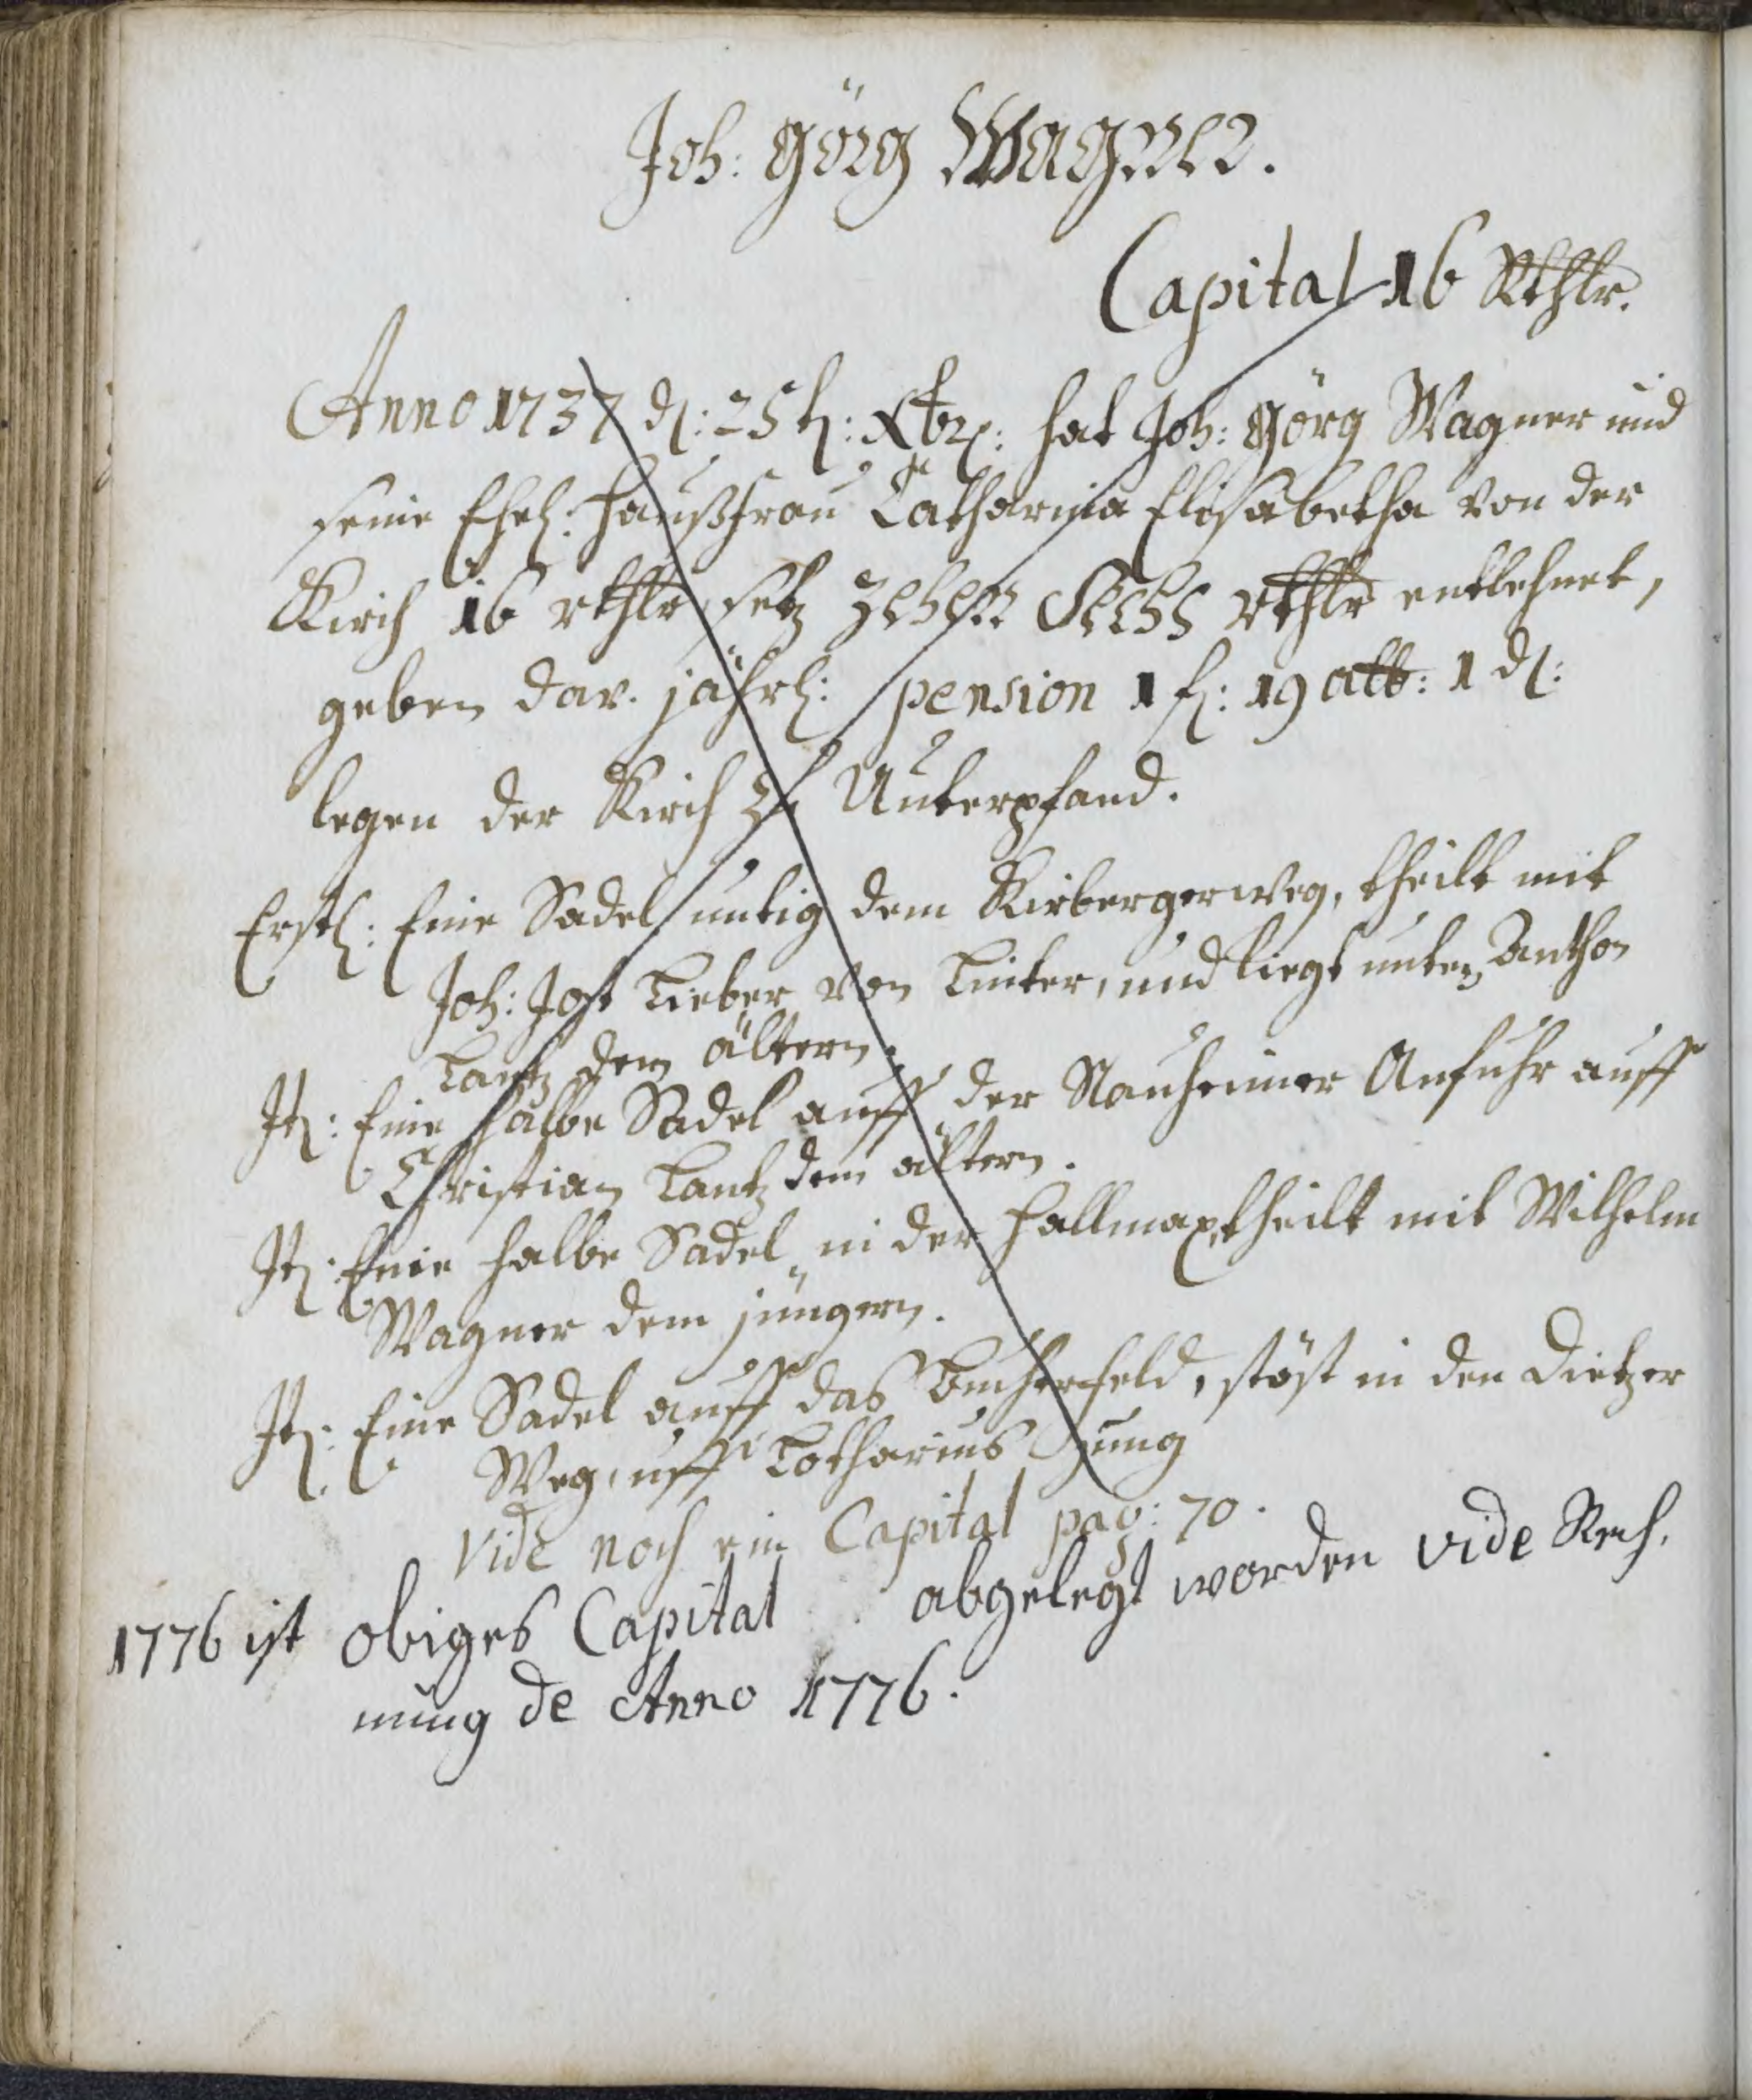 Joh: Görg Wagner.
Capital 16 Rthlr.
Anno 1737 d: 25t: Xbr: hat Joh: Görg Wagner und
seine Ehel: Haußfrau Catharina Elisabetha von der
Kirch 16 rthlr, setz zehen Sechs rthlr entlehnet,
geben dav. jährl: pension 1 fl: 19 alb: 1 d:
legen der Kirch zu Unterpfand.
Erstl: Eine Sadel untig dem Kirbergerweg, theilt mit
Joh: Jost Lieber von Linter, und liegt unten Anthon
Lantz dem ältern.
It: Eine halbe Sadel auff der Nauheimer Anfuhr auff
Christian Lantz dem ältern.
It: Eine halbe Sadel in der Hallmax, theilt mit Wilhelm
Wagner dem jüngern.
It: Eine Sadel auff das Bucherfeld, stöst in den Dietzer
Weg, uff Lotharius Jung
Vide noch ein Capital pag: 70.
1776 ist obiges Capital abgelegt worden vide Rech,
nung de Anno 1776.